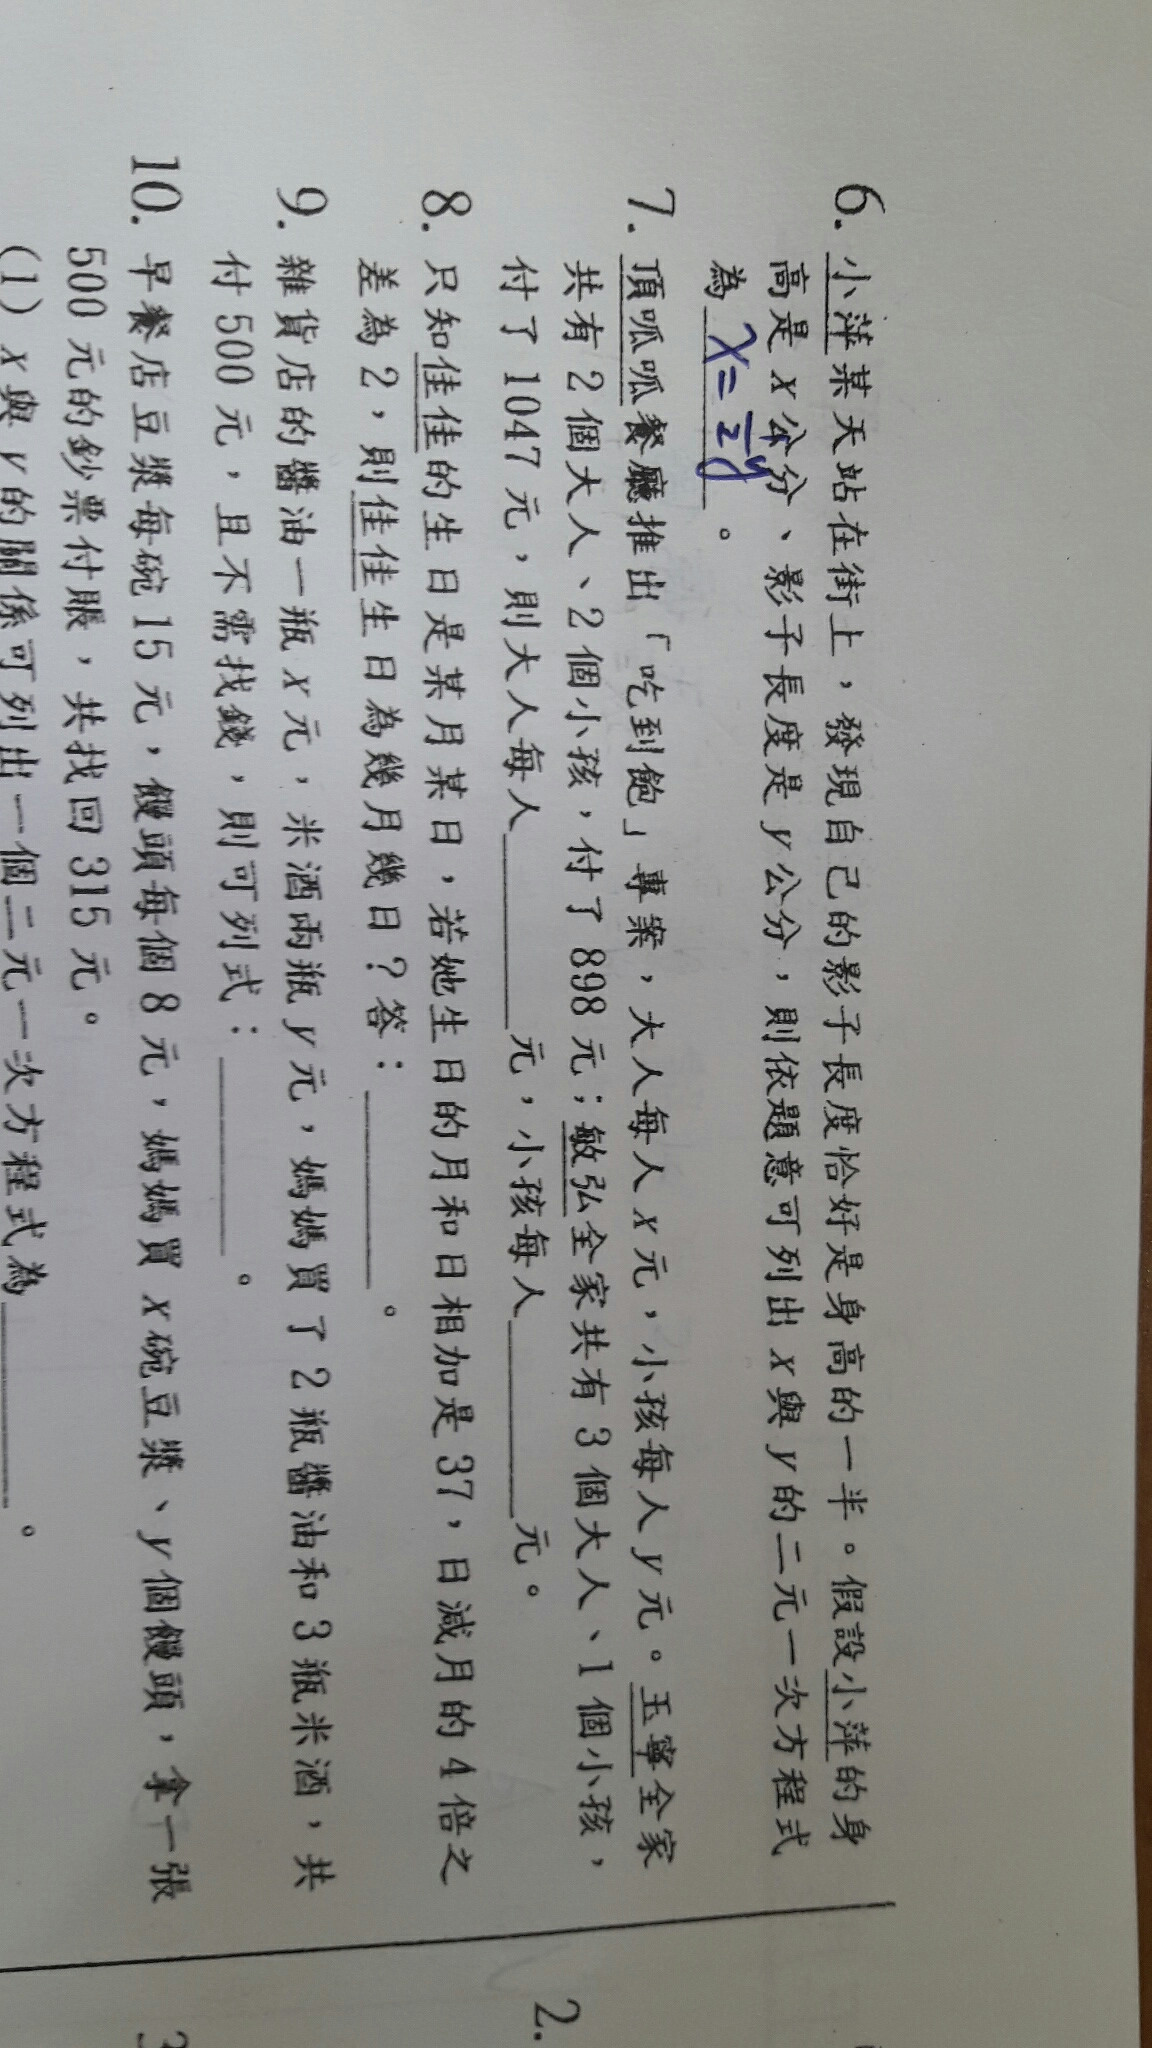 6. 小萍某天站在街上，發現自己的影子長度恰好是身高的一半。假設小萍的身
高是 x 公分、影子長度是 y 公分，則依題意可列出 x 與 y 的二元一次方程式
為 x=½y 。
7. 頂呱呱餐廳推出「吃到飽」專案，大人每人 x 元，小孩每人 y 元。玉寧全家
共有 2 個大人、2 個小孩，付了 898 元；敏弘全家共有 3 個大人、1 個小孩，
付了 1047 元，則大人每人______元，小孩每人______元。
8. 只知佳佳的生日是某月某日，若她生日的月和日相加是 37，日減月的 4 倍之
差為 2，則佳佳生日為幾月幾日？答：______。
9. 雜貨店的醬油一瓶 x 元，米酒兩瓶 y 元，媽媽買了 2 瓶醬油和 3 瓶米酒，共
付 500 元，且不需找錢，則可列式：______。
10. 早餐店豆漿每碗 15 元，饅頭每個 8 元，媽媽買 x 碗豆漿、y 個饅頭，拿一張
500 元的鈔票付賬，共找回 315 元。
(1) x 與 y 的關係可列出一個二元一次方程式為______。
2.
3